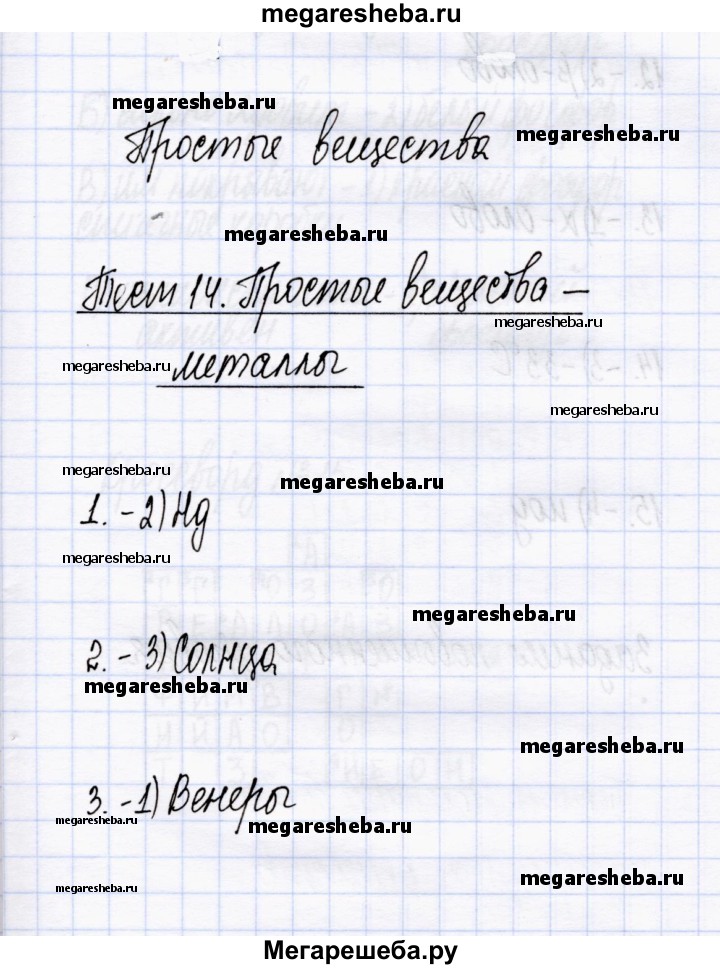 megaresheba.ru
megaresheba.ru
Простые вещества
megaresheba.ru
megaresheba.ru
Тест 14. Простые вещества –
megaresheba.ru
металлы
megaresheba.ru
megaresheba.ru
megaresheba.ru
megaresheba.ru
1. – 2) Hg
megaresheba.ru
megaresheba.ru
2. – 3) Солнца
megaresheba.ru
megaresheba.ru
3. – 1) Венеры
megaresheba.ru
megaresheba.ru
megaresheba.ru
megaresheba.ru
Мегарешеба.ру